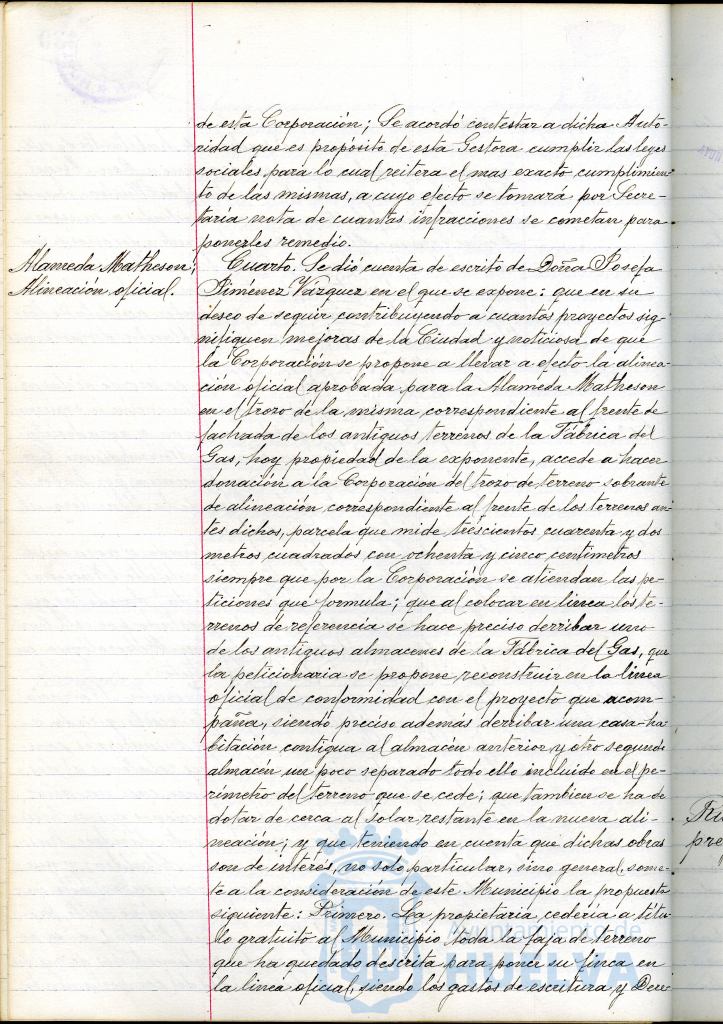 de esta Corporación; Se acordó contestar a dicha Auto-
ridad que es propósito de esta Gestora cumplir las leyes
sociales para lo cual reitera el mas exacto cumplimien-
to de las mismas, a cuyo efecto se tomará por Secre-
taría nota de cuantas infracciones se cometan para
ponerles remedio.
Alameda Matheson;
Alineación oficial.
Cuarto. Se dió cuenta de escrito de Doña Josefa
Jiménez Vázquez en el que se expone: que en su
deseo de seguir contribuyendo a cuantos proyectos sig-
nifiquen mejoras de la Ciudad y noticiosa de que
la Corporación se propone a llevar a efecto la alinea-
ción oficial aprobada para la Alameda Matheson
en el trozo de la misma correspondiente al frente de
fachada de los antiguos terrenos de la Fábrica del
Gas, hoy propiedad de la exponente, accede a hacer
donación a la Corporación del trozo de terreno sobrante
de alineación correspondiente al frente de los terrenos an-
tes dichos, parcela que mide trescientos cuarenta y dos
metros cuadrados con ochenta y cinco centímetros
siempre que por la Corporación se atiendan las pe-
ticiones que formula; que al colocar en línea los te-
rrenos de referencia se hace preciso derribar uno
de los antiguos almacenes de la Fábrica del Gas, que
la peticionaria se propone reconstruir en la línea
oficial de conformidad con el proyecto que acom-
paña, siendo preciso además derribar una casa-ha-
bitación contigua al almacén anterior y otro segundo
almacén un poco separado todo ello incluido en el pe-
rímetro del terreno que se cede; que tambien se ha de
dotar de cerca al solar restante en la nueva ali-
neación; y que teniendo en cuenta que dichas obras
son de interés, no solo particular, sino general, some-
te a la consideración de este Municipio la propuesta
siguiente: Primero. La propietaria cedería a títu-
lo gratuito al Municipio toda la faja de terreno
que ha quedado descrita para poner su finca en
la línea oficial, siendo los gastos de escritura y Dere
Ayuntamiento de
HUELVA